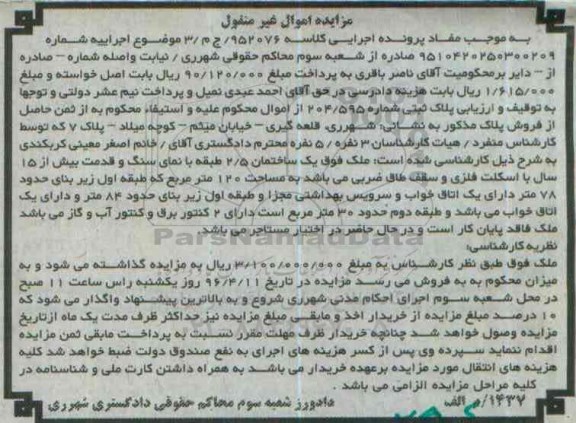 مزایده اموال غیر منقول
به موجب مفاد پرونده اجرایی کلاسه ۹۵۲۰۷۶/ج م/۳ موضوع اجراییه شماره
۹۵۱۰۴۲۰۲۵۰۳۰۰۲۰۹ صادره از شعبه سوم محاکم حقوقی شهرری / نیابت واصله شماره – صادره
از – دایر برمحکومیت آقای ناصر باقری به پرداخت مبلغ ۹۰/۱۲۰/۰۰۰ ریال بابت اصل خواسته و مبلغ
۱/۶۱۵/۰۰۰ ریال بابت هزینه دادرسی در حق آقای احمد عبدی نمیل و پرداخت نیم عشر دولتی و توجها
به توقیف و ارزیابی پلاک ثبتی شماره ۲۰۴/۵۹۵ از اموال محکوم علیه و استیفاء محکوم به از ثمن حاصل
از فروش پلاک مذکور به نشانی: شهرری، قلعه گبری – خیابان میثم – کوچه میلاد – پلاک ۷ که توسط
کارشناس منفرد / هیات کارشناسان ۳ نفره / ۵ نفره محترم دادگستری آقای / خانم اصغر معینی کربکندی
به شرح ذیل کارشناسی شده است: ملک فوق یک ساختمان ۲/۵ طبقه با نمای سنگ و قدمت بیش از ۱۵
سال با اسکلت فلزی و سقف طاق ضربی می باشد به مساحت ۱۲۰ متر مربع که طبقه اول زیر بنای حدود
۷۸ متر دارای یک اتاق خواب و سرویس بهداشتی مجزا و طبقه اول زیر بنای حدود ۸۴ متر و دارای یک
اتاق خواب می باشد و طبقه دوم حدود ۳۰ متر مربع است دارای ۲ کنتور برق و کنتور آب و گاز می باشد
ملک فاقد پایان کار است و در حال حاضر در اختیار مستاجر می باشد.
ParsNamadData
نظریه کارشناسی:
ملک فوق طبق نظر کارشناس به مبلغ ۳/۱۰۰/۰۰۰/۰۰۰ ریال به مزایده گذاشته می شود و به
میزان محکوم به به فروش می رسد مزایده در تاریخ ۹۶/۴/۱۱ روز یکشنبه راس ساعت ۱۱ صبح
در محل شعبه سوم اجرای احکام مدنی شهرری شروع و به بالاترین پیشنهاد واگذار می شود که
۱۰ درصد مبلغ مزایده از خریدار اخذ و مابقی مبلغ مزایده نیز حداکثر ظرف مدت یک ماه ازتاریخ
مزایده وصول خواهد شد چنانچه خریدار ظرف مهلت مقرر نسبت به پرداخت مابقی ثمن مزایده
اقدام ننماید سپرده وی پس از کسر هزینه های اجرای به نفع صندوق دولت ضبط خواهد شد کلیه
هزینه های انتقال مورد مزایده برعهده خریدار می باشد به همراه داشتن کارت ملی و شناسنامه در
کلیه مراحل مزایده الزامی می باشد .
۱۴۳۷/م الف دادورز شعبه سوم محاکم حقوقی دادگستری شهرری